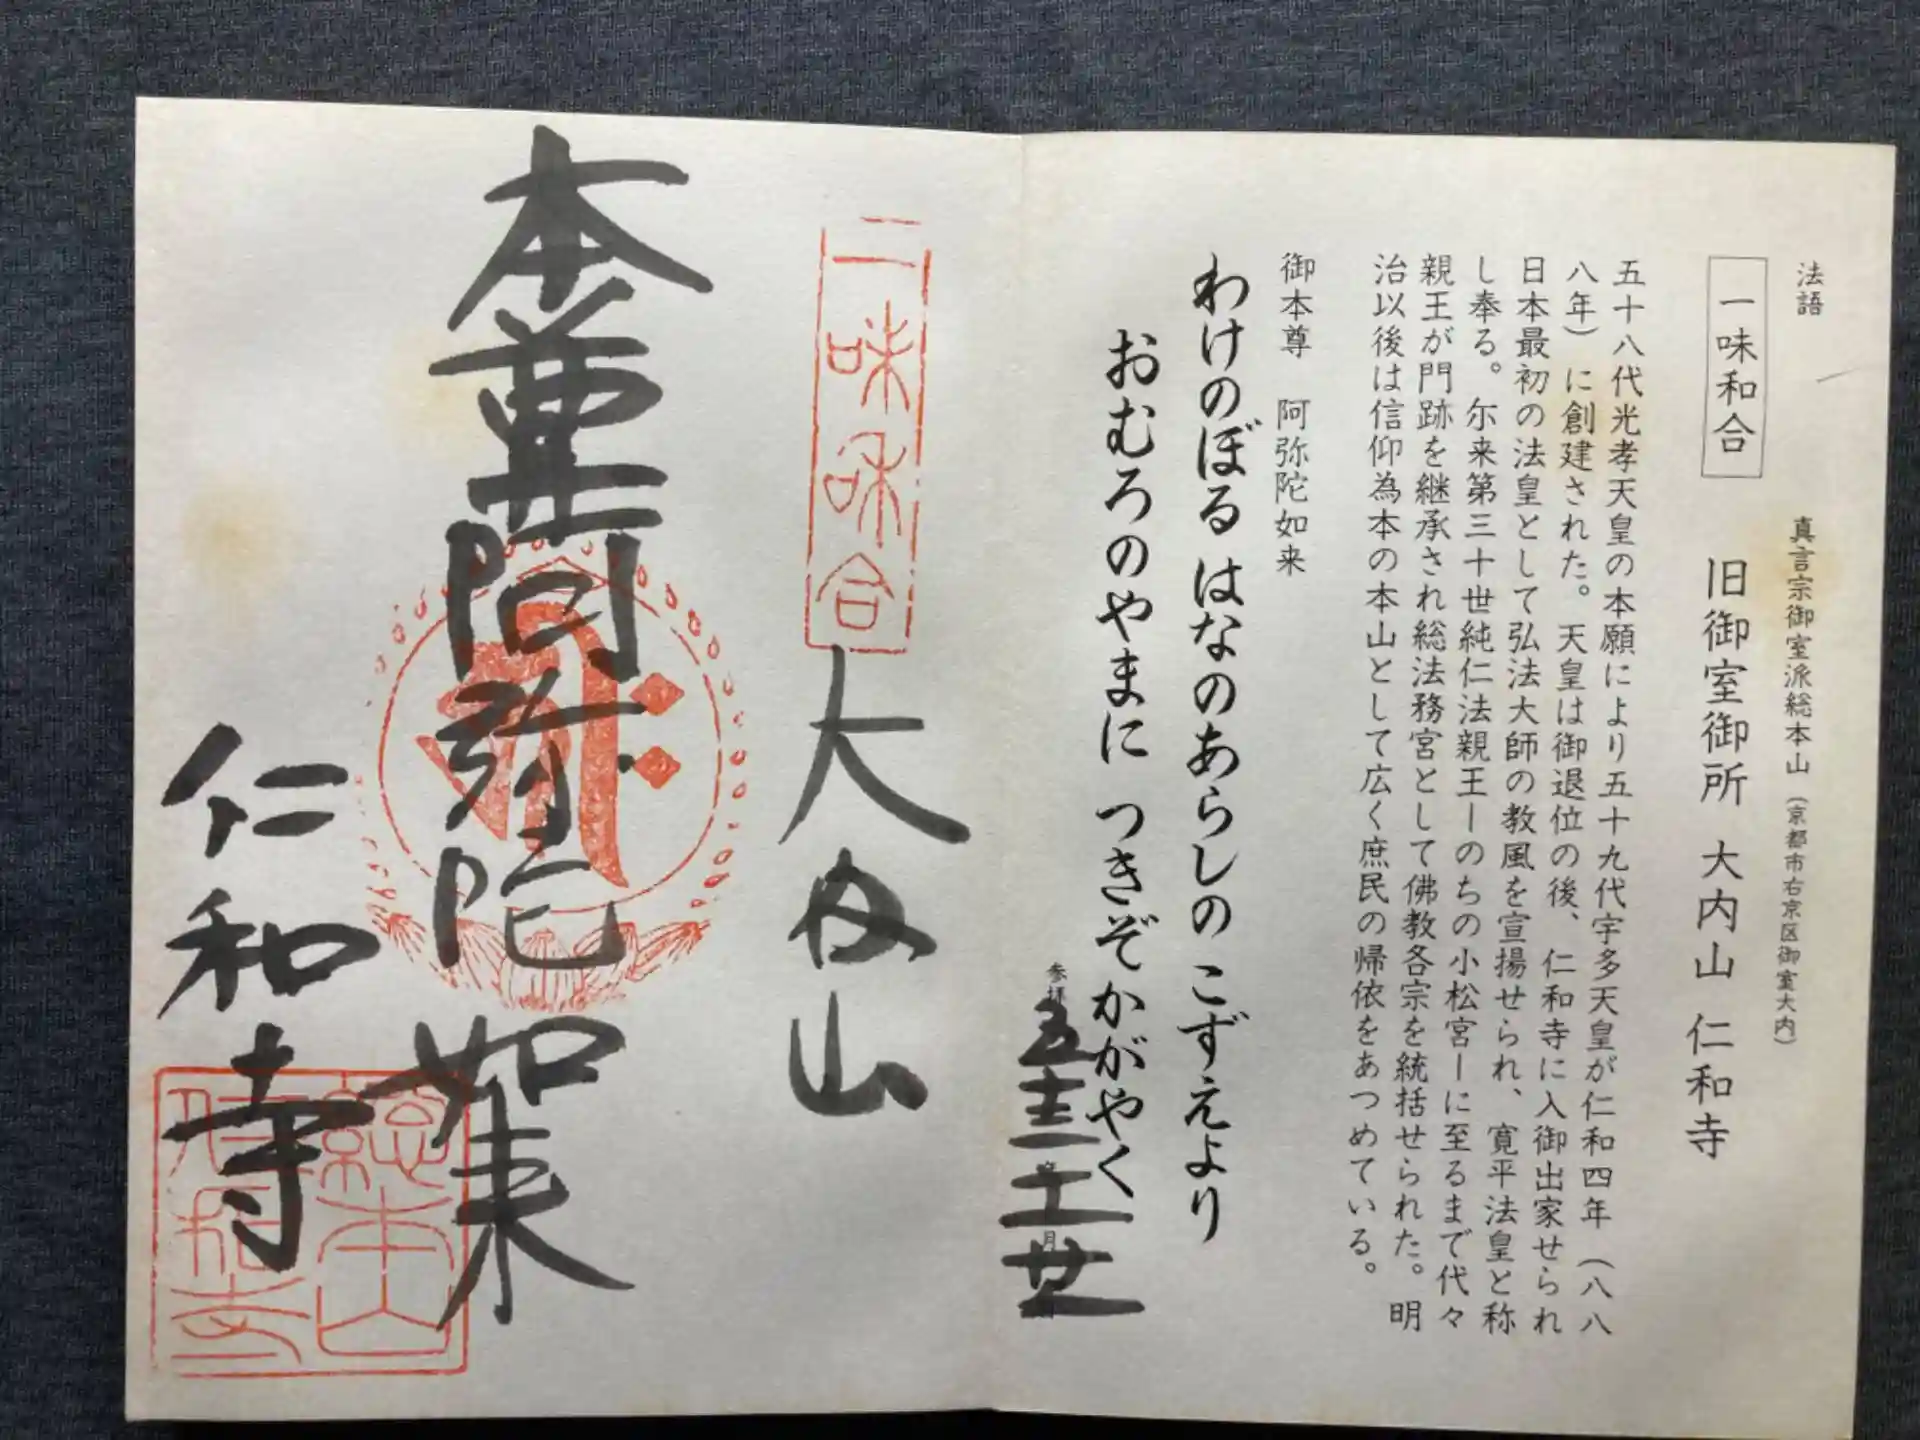 法語
真言宗御室派総本山（京都市右京区御室大内）
一味和合
旧御室御所 大内山 仁和寺
五十八代光孝天皇の本願により五十九代宇多天皇が仁和四年（八八
八年）に創建された。天皇は御退位の後、仁和寺に入御出家せられ
日本最初の法皇として弘法大師の教風を宣揚せられ、寛平法皇と称
し奉る。尓来第三十世純仁法親王ーのちの小松宮ーに至るまで代々
親王が門跡を継承され総法務宮として佛教各宗を統括せられた。明
治以後は信仰為本の本山として広く庶民の帰依をあつめている。
御本尊 阿弥陀如来
わけのぼる はなのあらしの こずえより
おむろのやまに つきぞかがやく
参拝
月
一味和合
大内山
本尊阿弥陀如来
仁和寺
総本山
仁和寺